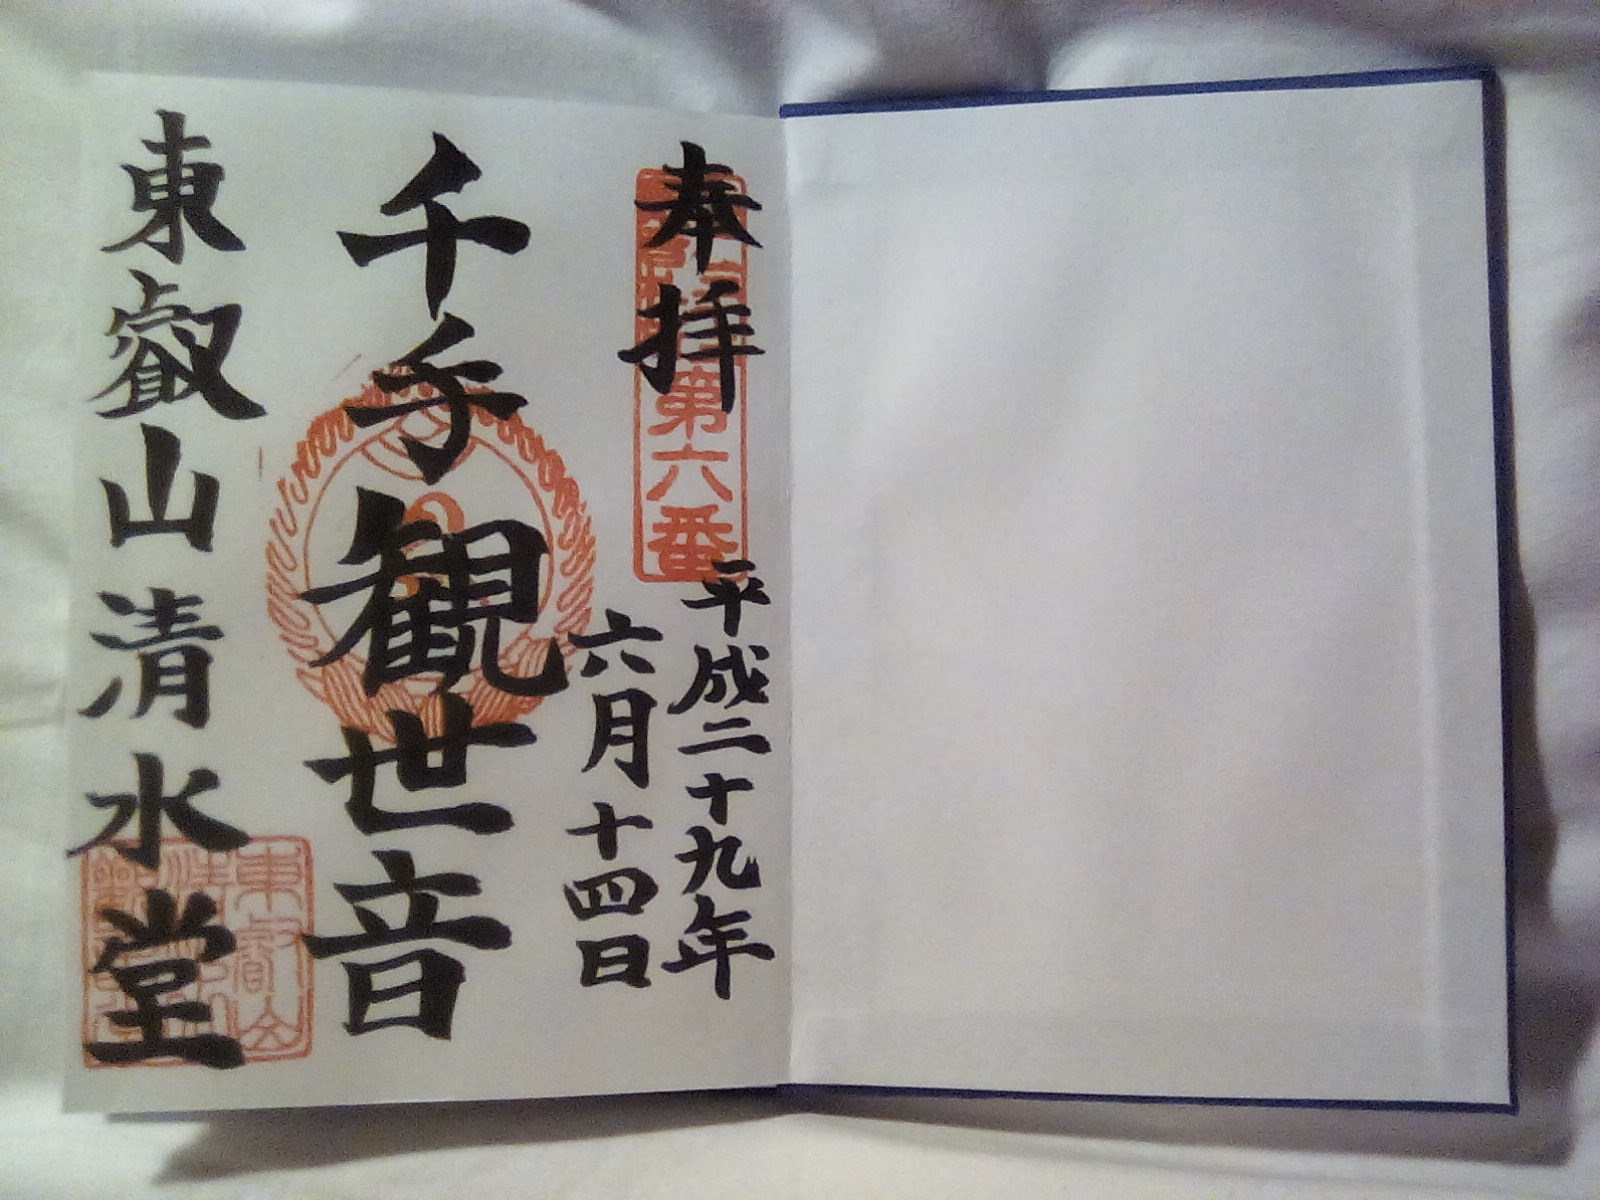 奉拝
第六番
平成二十九年
六月十四日
千手観世音
東叡山清水堂